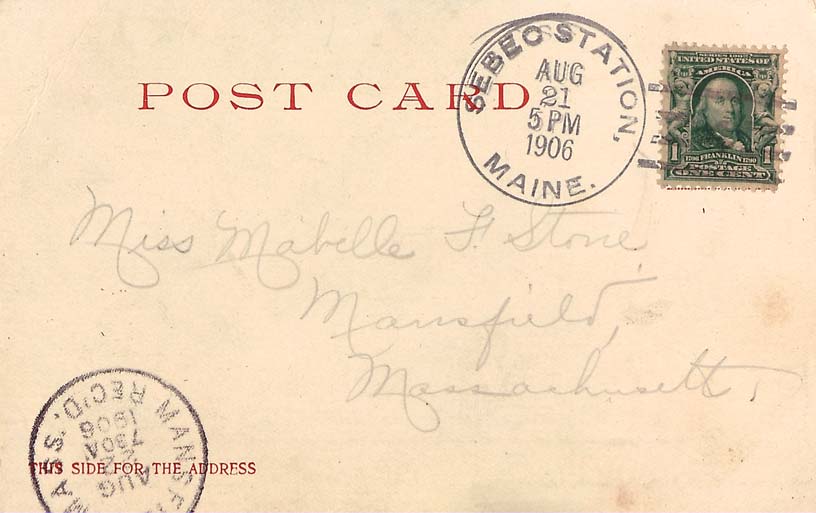 POST CARD
SEBEC STATION,
AUG
21
5 PM
1906
MAINE.
SERIES 1902
UNITED STATES OF
AMERICA
1706 FRANKLIN 1790
1 1
POSTAGE
ONE CENT
Miss Mabelle F. Stone,
Mansfield,
Massachusetts,
MANSFI
MASS. REC'D.
AUG
22
730A
1906
THIS SIDE FOR THE ADDRESS